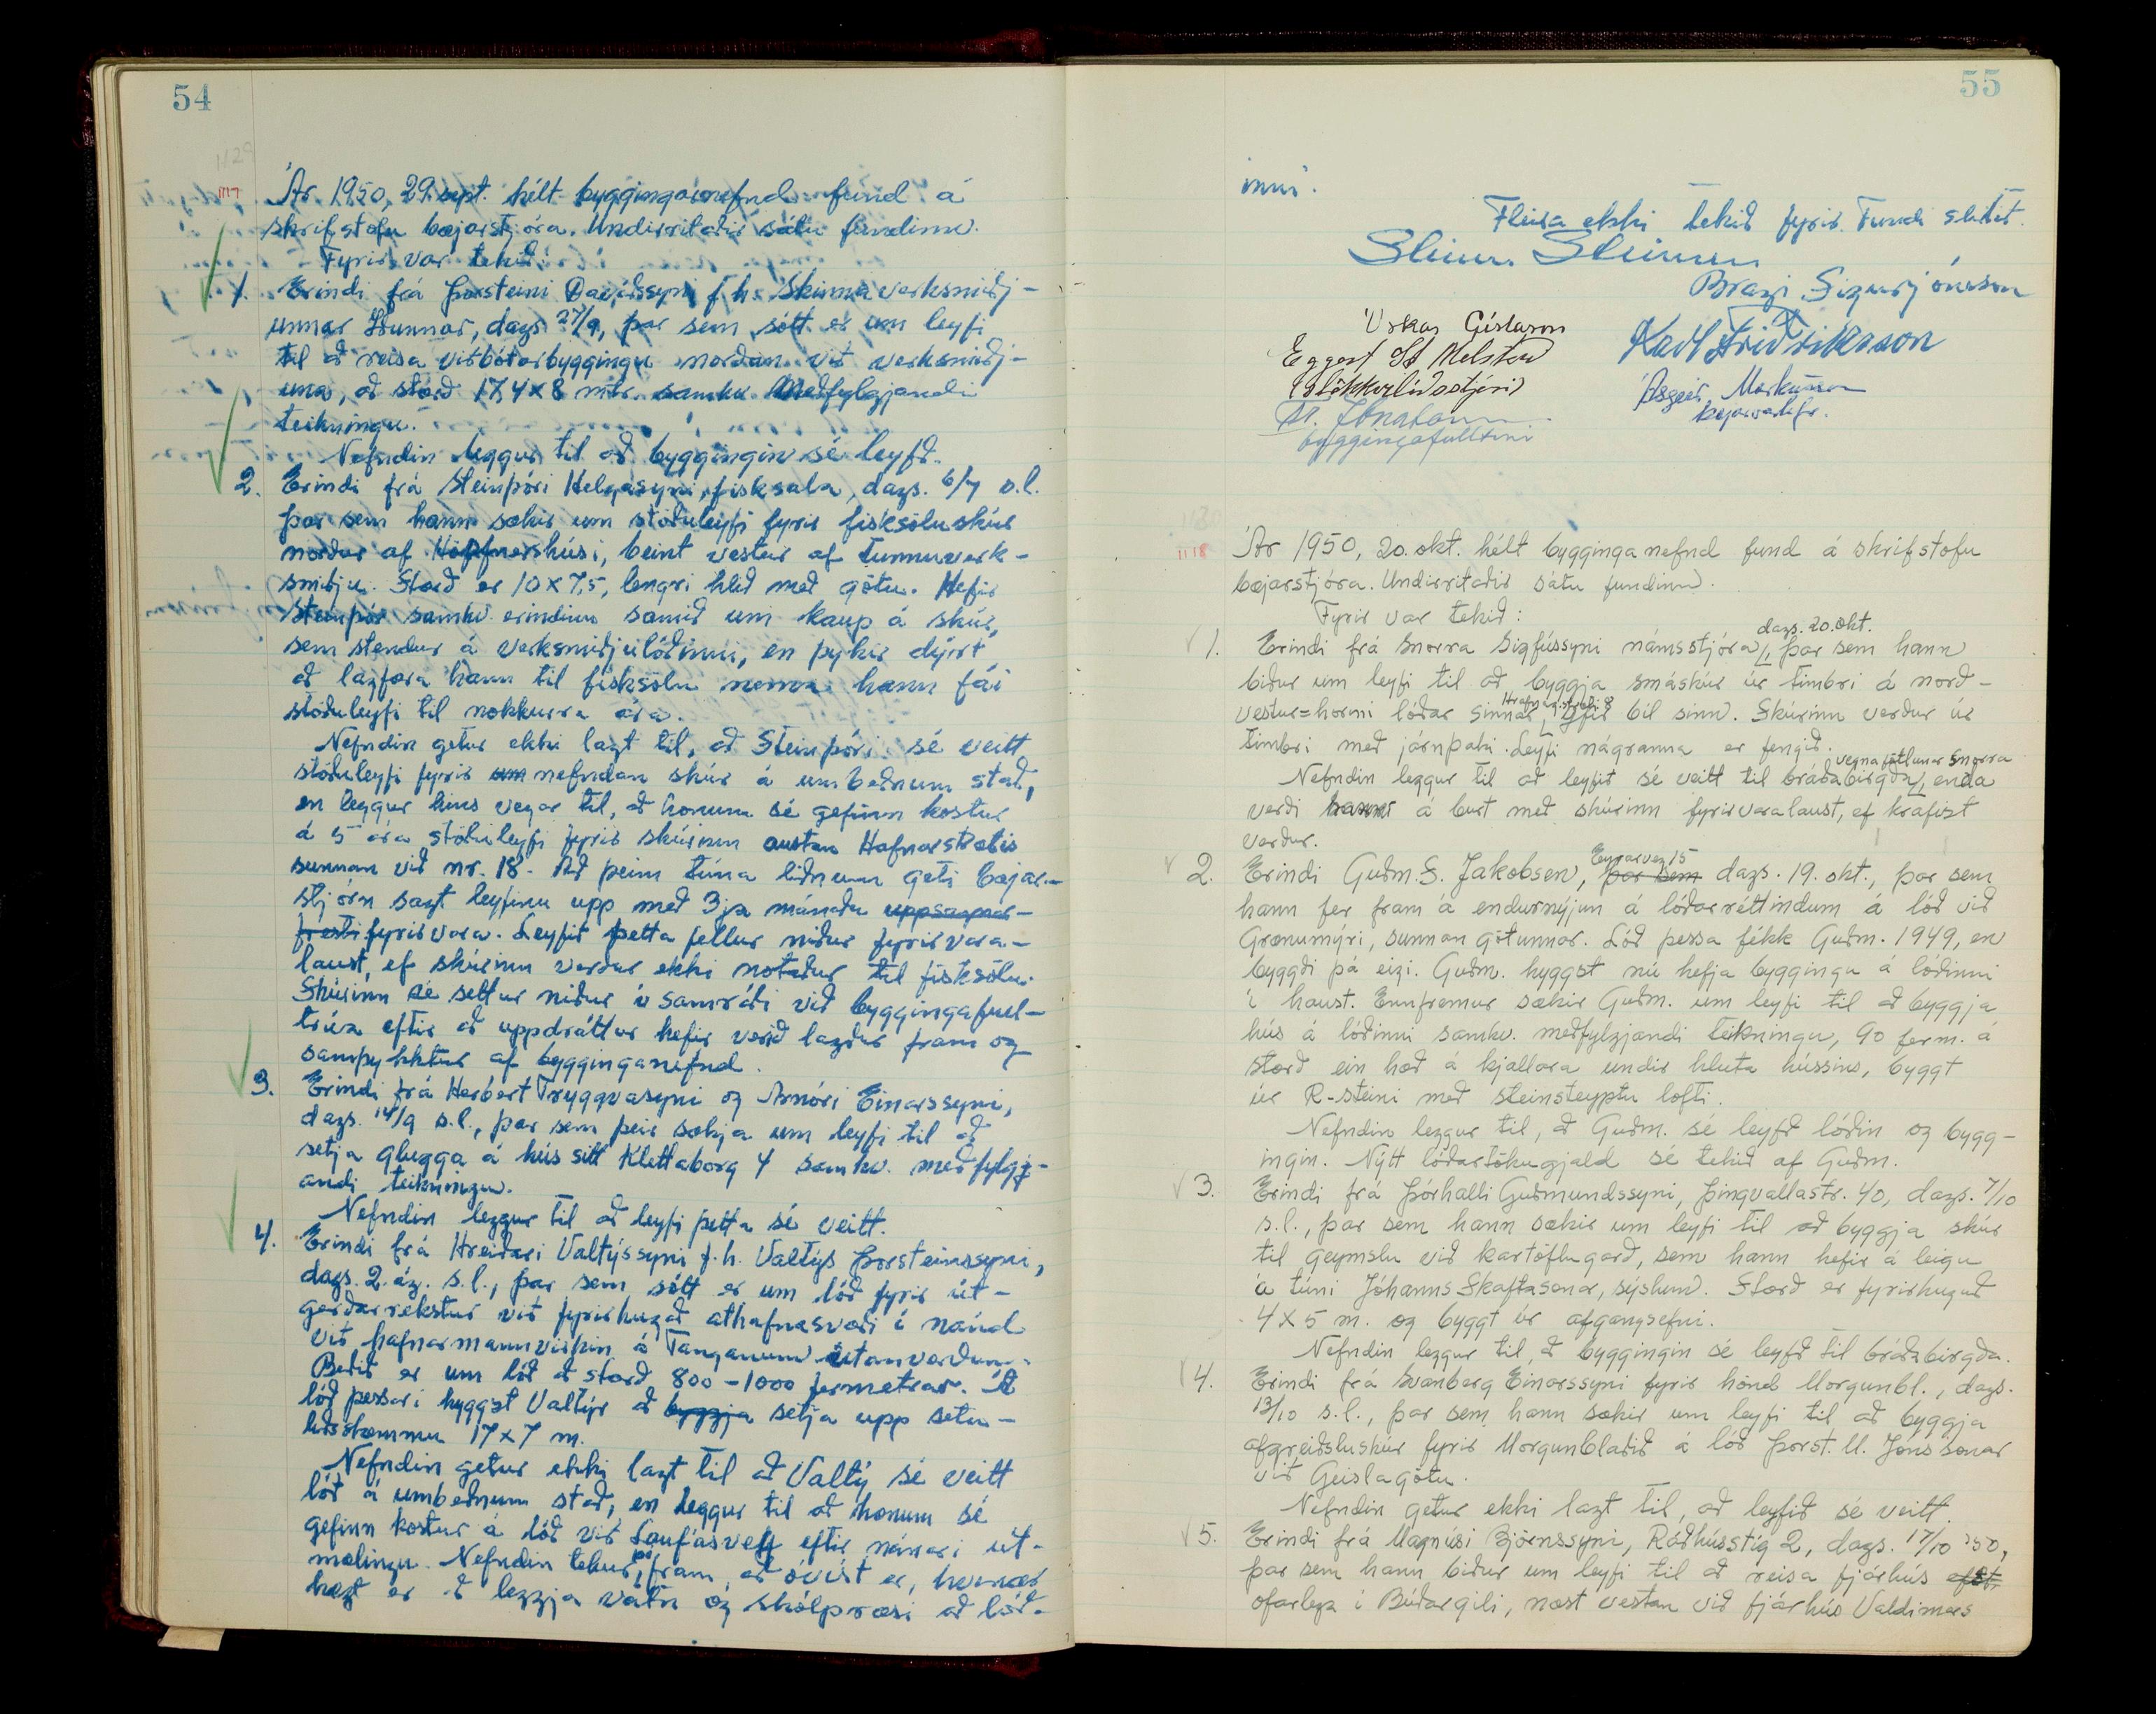 54
1129
1117
Ár 1950, 29. sept. hélt bygginganefnd fund á
skrifstofu bæjarstjóra. Undirritaðir sátu fundinn.
Fyrir var tekið:
1. Erindi frá Þorsteini Davíðssyni f.h. Skinnaverksmiðj-
unnar Iðunnar, dags. 27/9, þar sem sótt er um leyfi
til að reisa viðbótarbyggingu norðan við verksmiðj-
una, að stærð 17,4 x 8 mtr. samkv. meðfylgjandi
teikningu.
Nefndin leggur til að byggingin sé leyfð.
2. Erindi frá Steinþóri Helgasyni, fisksala, dags. 6/7 s.l.
þar sem hann sækir um stöðuleyfi fyrir fisksöluskúr
norður af Höpfnershúsi, beint vestur af Tunnuverk-
smiðju. Stærð er 10 x 7,5, lengri hlið með götu. Hefir
Steinþór samkv. erindinu samið um kaup á skúr,
sem stendur á verksmiðjulóðinni, en þykir dýrt
að lagfæra hann til fisksölu nema hann fái
stöðuleyfi til nokkurra ára.
Nefndin getur ekki lagt til, að Steinþóri sé veitt
stöðuleyfi fyrir um nefndan skúr á umbeðnum stað,
en leggur hins vegar til, að honum sé gefinn kostur
á 5 ára stöðuleyfi fyrir skúrinn austan Hafnarstrætis
sunnan við nr. 18. Að þeim tíma liðnum geti bæjar-
stjórn sagt leyfinu upp með 3ja mánaða uppsagnar-
fresti fyrirvara. Leyfið þetta fellur niður fyrirvara-
laust, ef skúrinn verður ekki notaður til fisksölu.
Skúrinn sé settur niður í samráði við byggingafull-
trúa eftir að uppdráttur hefir verið lagður fram og
samþykktur af bygginganefnd.
3. Erindi frá Herbert Tryggvasyni og Arnóri Einarssyni,
dags. 14/9 s.l., þar sem þeir sækja um leyfi til að
setja glugga á hús sitt Klettaborg 4 samkv. meðfylgj-
andi teikningu.
Nefndin leggur til að leyfi þetta sé veitt.
4. Erindi frá Hreiðari Valtýssyni f.h. Valtýs Þorsteinssyni,
dags. 2. ág. s.l., þar sem sótt er um lóð fyrir út-
gerðarrekstur við fyrirhugað athafnasvæði í nánd
við hafnarmannvirkin á Tanganum utanverðum.
Beðið er um lóð að stærð 800-1000 fermetrar. Á
lóð þessari hyggst Valtýr að byggja setja upp setu-
liðsskemmu 17 x 7 m.
Nefndin getur ekki lagt til að Valtý sé veitt
lóð á umbeðnum stað, en leggur til að honum sé
gefinn kostur á lóð við Laufásveg eftir nánari út-
mælingu. Nefndin tekur þó fram, að óvíst er, hvenær
hægt er að leggja vatn og skólpræsi að lóð-
55
inni.
Fleira ekki tekið fyrir. Fundi slitið.
Steinn Steinsen
Bragi Sigurjónsson
Óskar Gíslason
Karl Friðriksson
Eggert St Melstað
(slökkviliðsstjóri)
Ásgeir Markússon
bæjarverkfr.
byggingafulltrúi
1118
Ár 1950, 20. okt. hélt bygginganefnd fund á skrifstofu
bæjarstjóra. Undirritaðir sátu fundinn.
Fyrir var tekið:
dags. 20. okt.
1. Erindi frá Snorra Sigfússyni námsstjóra, þar sem hann
biður um leyfi til að byggja smáskúr úr timbri á norð-
Hrafnagilsstræti 8
vestur=horni lóðar sinnar, yfir bíl sinn. Skúrinn verður úr
timbri með járnþaki. Leyfi nágranna er fengið.
vegna fötlunar Snorra
Nefndin leggur til að leyfið sé veitt til bráðabirgða, enda
verði hann á burt með skúrinn fyrirvaralaust, ef krafist
verður.
Eyrarveg 15
2. Erindi Guðm. S. Jakobsen, þar sem dags. 19. okt., þar sem
hann fer fram á endurnýjun á lóðarréttindum á lóð við
Grænumýri, sunnan götunnar. Lóð þessa fékk Guðm. 1949, en
byggði þá eigi. Guðm. hyggst nú hefja byggingu á lóðinni
í haust. Ennfremur sækir Guðm. um leyfi til að byggja
hús á lóðinni samkv. meðfylgjandi teikningu, 90 ferm. á
stærð ein hæð á kjallara undir hluta hússins, byggt
úr R-steini með steinsteyptu lofti.
Nefndin leggur til, að Guðm. sé leyfð lóðin og bygg-
ingin. Nýtt lóðartökugjald sé tekið af Guðm.
3. Erindi frá Þórhalli Guðmundssyni, Þingvallastr. 40, dags. 7/10
s.l., þar sem hann sækir um leyfi til að byggja skúr
til geymslu við kartöflugarð, sem hann hefir á leigu
á túni Jóhanns Skaftasonar, sýslum. Stærð er fyrirhuguð
4 x 5 m. og byggt úr afgangsefni.
Nefndin leggur til, að byggingin sé leyfð til bráðabirgða.
4. Erindi frá Svanberg Einarssyni fyrir hönd Morgunbl., dags.
13/10 s.l., þar sem hann sækir um leyfi til að byggja
afgreiðsluskúr fyrir Morgunblaðið á lóð Þorst. M. Jónssonar
við Geislagötu.
Nefndin getur ekki lagt til, að leyfið sé veitt.
5. Erindi frá Magnúsi Björnssyni, Ráðhússtíg 2, dags. 17/10 '50,
þar sem hann biður um leyfi til að reisa fjárhús efst
ofarlega í Búðargili, næst vestan við fjárhús Valdimars